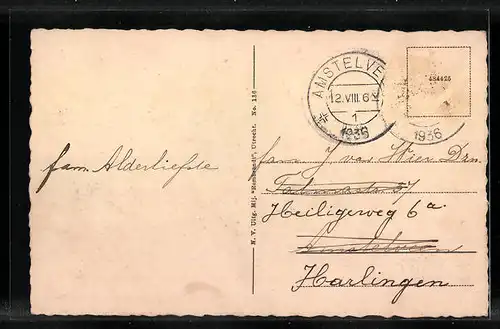 fam. Alderliefste
N. V. Uitg. Mij. "Rembrandt", Utrecht. No. 136
AMSTELVE
12.VIII.6
1
1936
1936
484425
fam. J. van Wier Dzn.
Heiligeweg 6a
Amstelveen
Harlingen